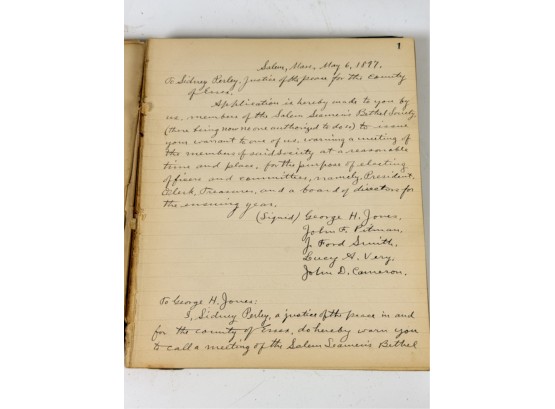 1
Salem, Mass, May 6, 1897.
To Sidney Perley, Justice of the peace for the County
of Essex.
Application is hereby made to you by
us, members of the Salem Seamen's Bethel Society,
(there being now no one authorized to do so) to issue
your warrant to one of us, warning a meeting of
the members of said society at a reasonable
time and place, for the purpose of electing
officers and committees, namely, President,
Clerk, Treasurer, and a board of directors for
the ensuing year.
(Signed) George H. Jones,
John F. Pitman,
J. Ford Smith,
Lucy A. Very,
John D. Cameron.
To George H. Jones:
I, Sidney Perley, a justice of the peace in and
for the county of Essex, do hereby warn you
to call a meeting of the Salem Seamen's Bethel